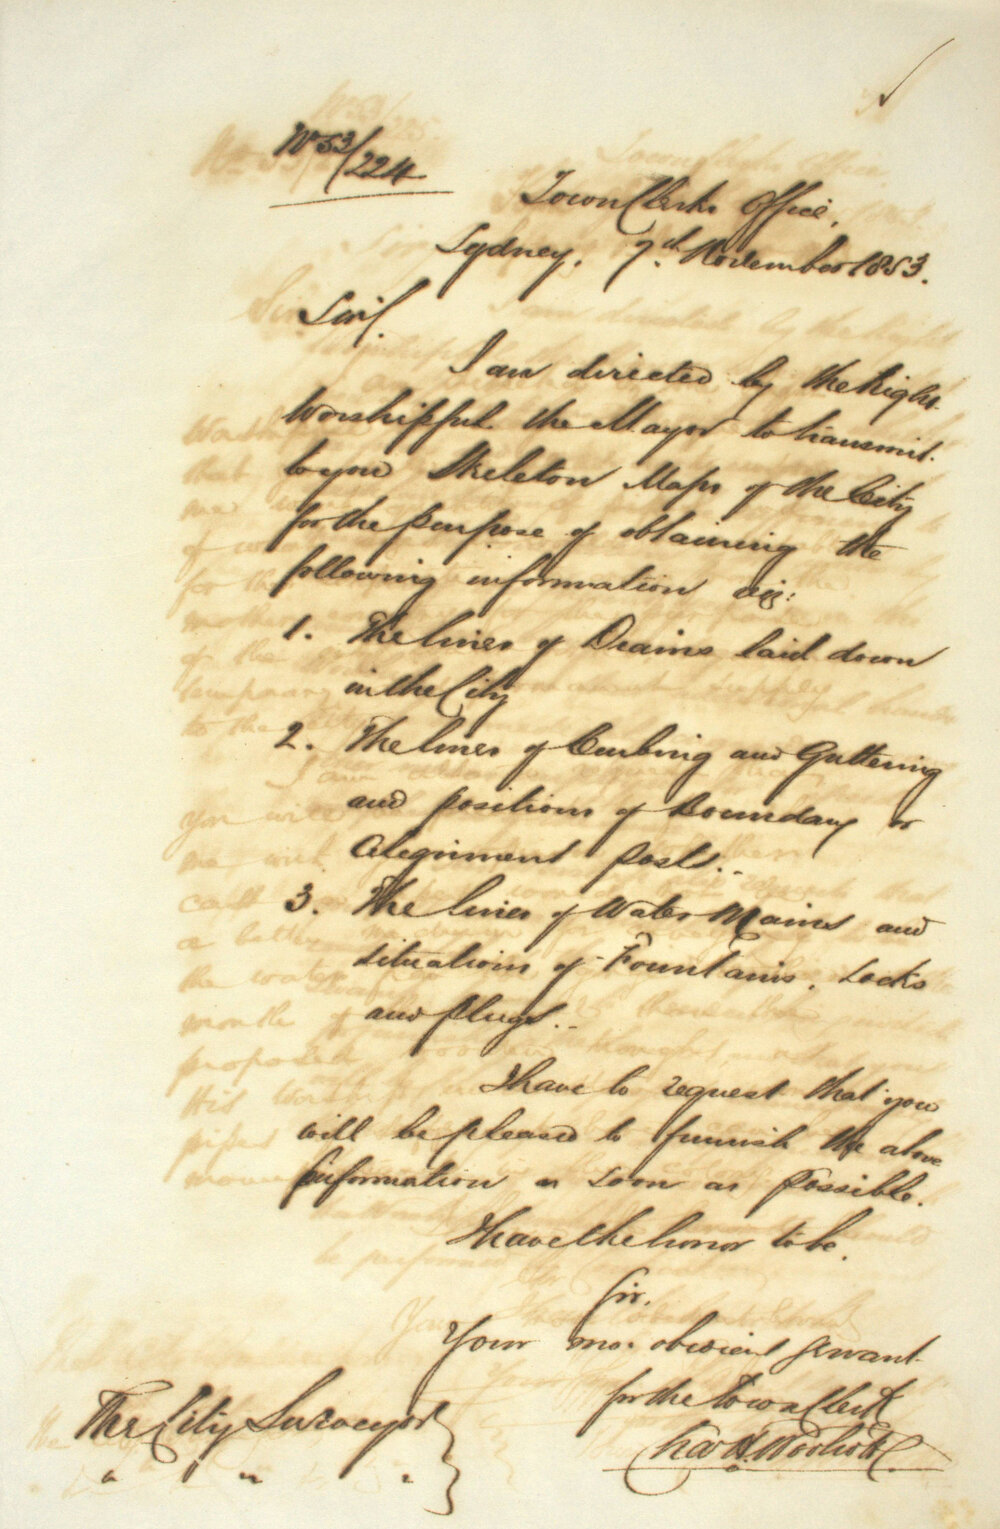 No 53/224
Town Clerks Office,
Sydney, 7th November 1853.
Sir,
I am directed by the Right
Worshipful the Mayor to transmit
to you Skeleton Maps of the City
for the purpose of obtaining the
following information viz:
1. The lines of Drains laid down
in the City
2. The lines of Curbing and Guttering
and positions of Boundary or
Alignment posts..
3. The lines of Water Mains and
situations of Fountains, Locks
and plugs..
I have to request that you
will be pleased to furnish the above
information as soon as possible.
I have the honor to be,
Sir,
Your mo. obedient servant
for the Town Clerk
Chas H. 
The City Surveyor